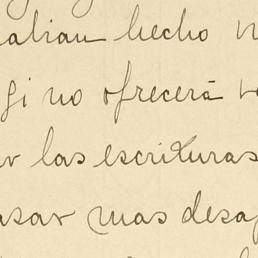 abian hecho
gi no ofrecerá
las escrituras
asar mas desa